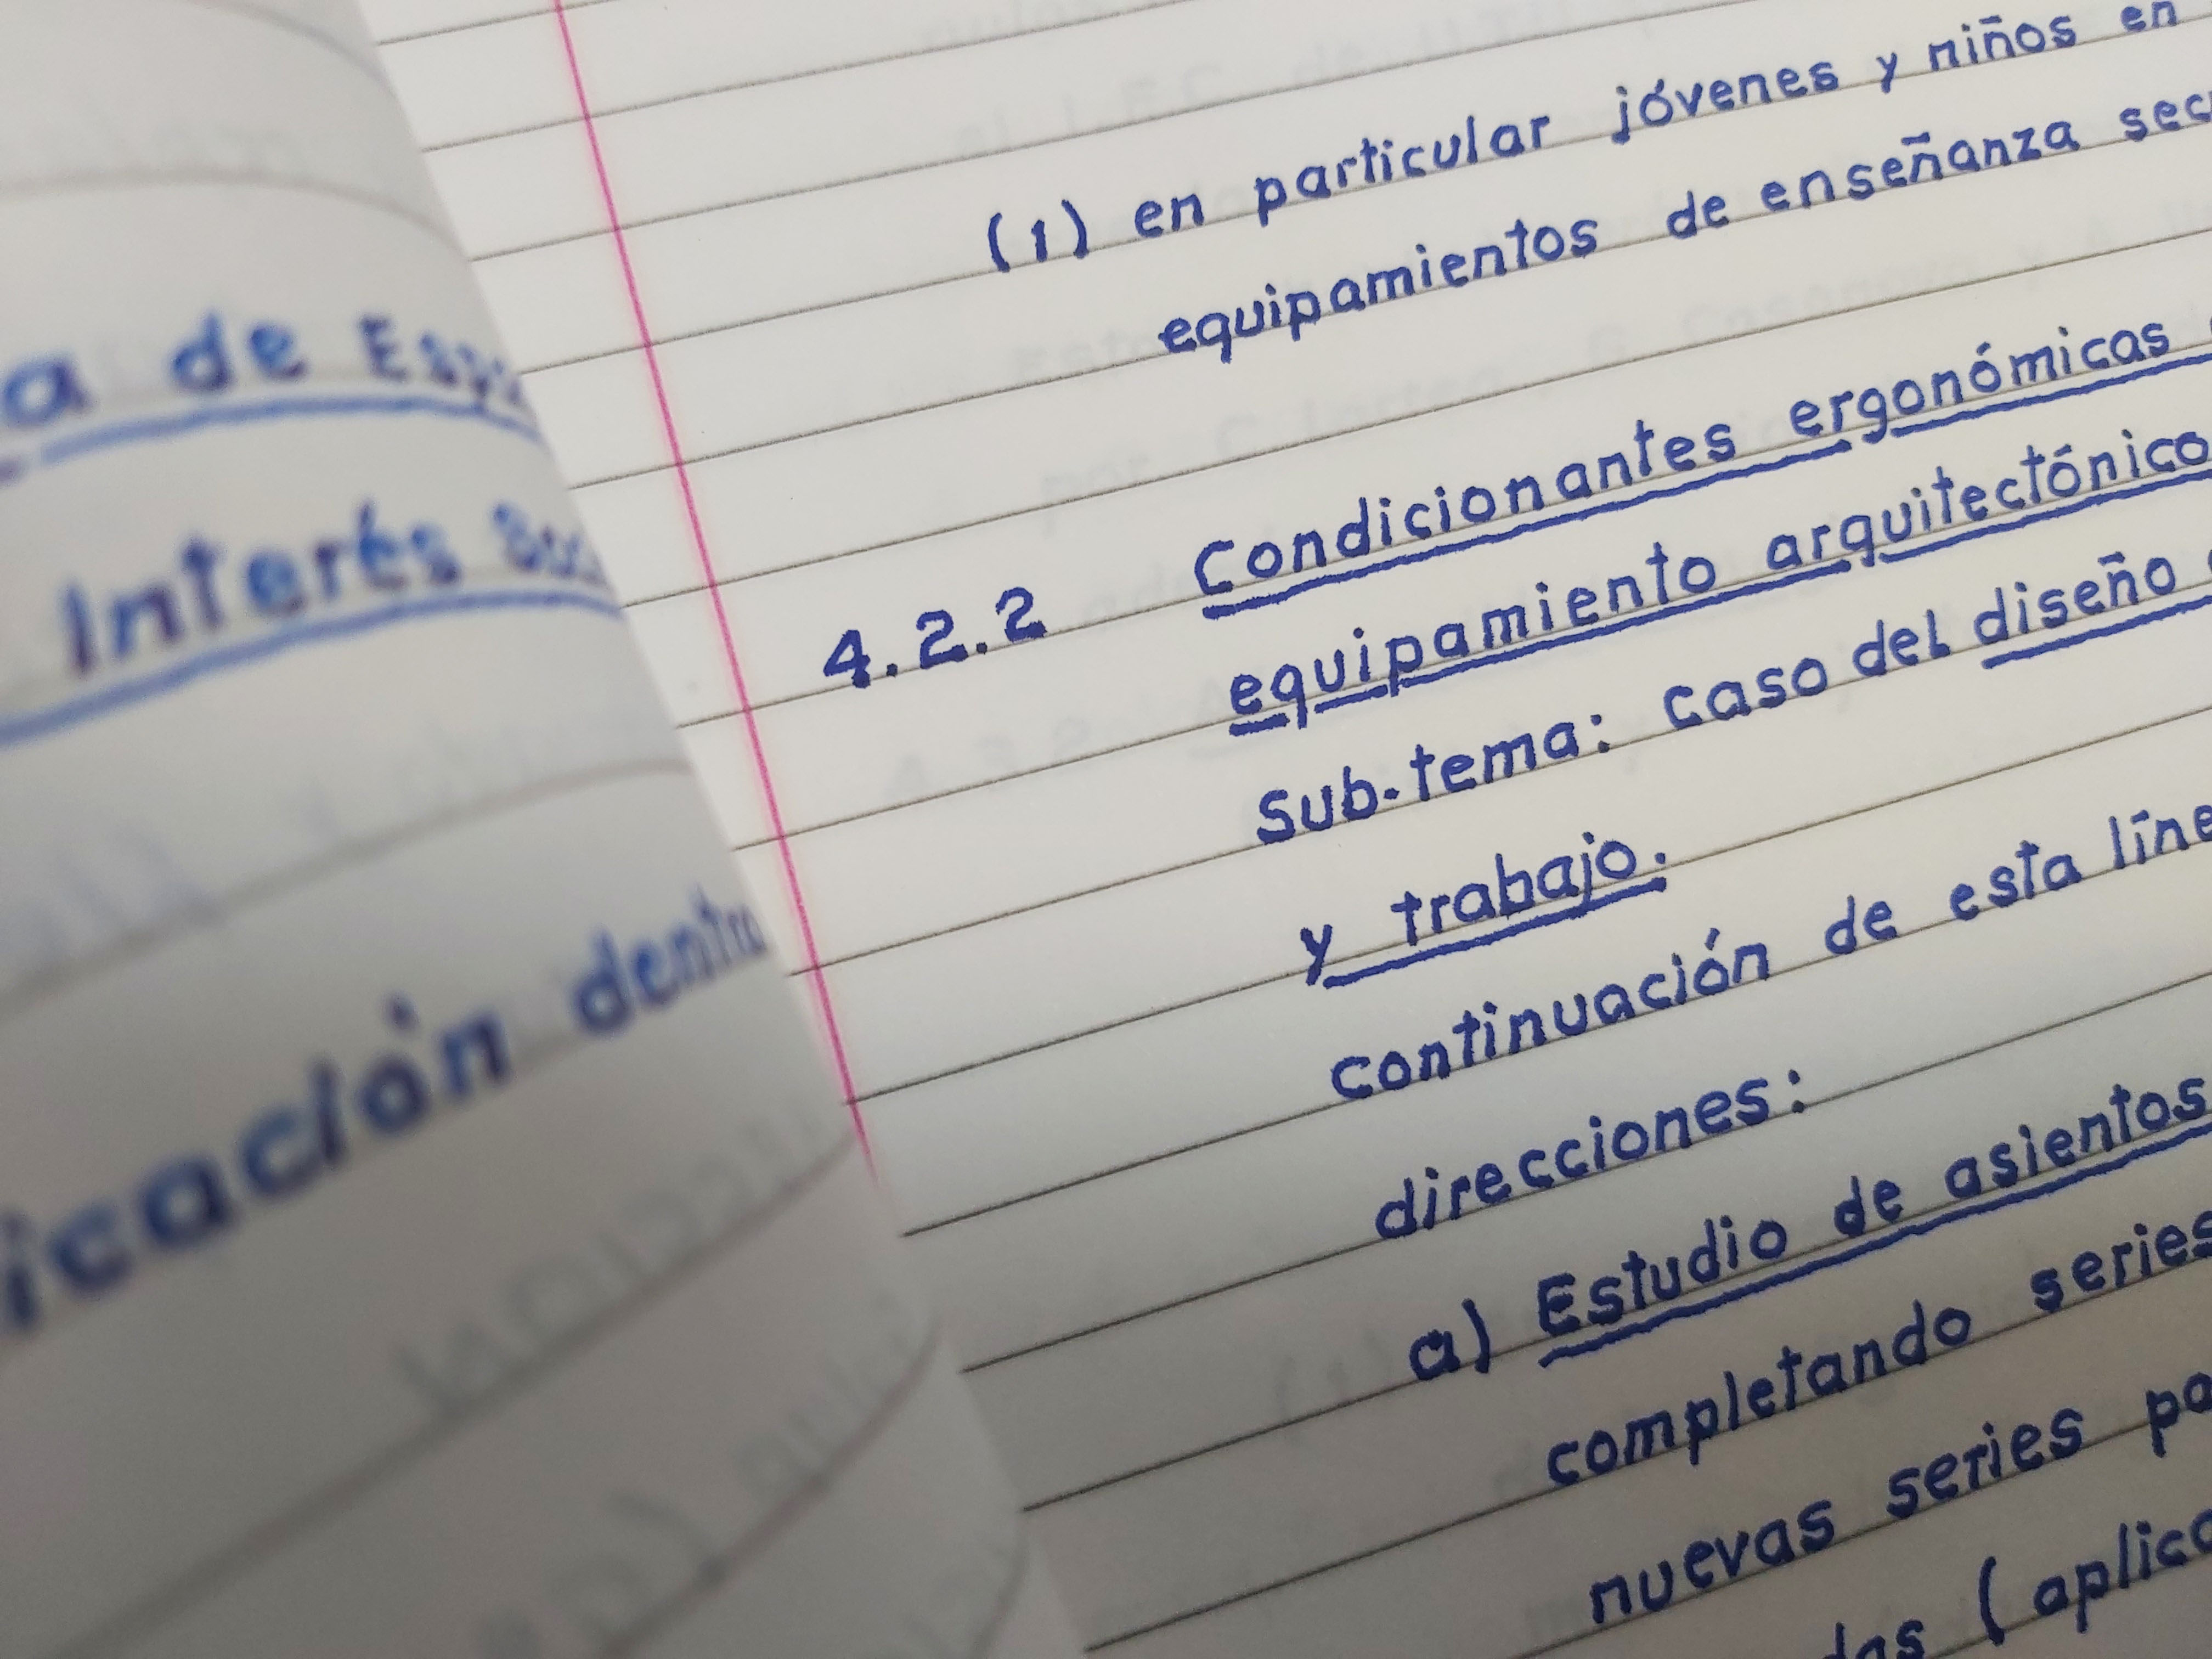 a de
Interés
icación dentro
(1) en particular jóvenes y niños en
equipamientos de enseñanza
4.2.2 Condicionantes ergonómicas
equipamiento arquitectónico
Sub-tema: caso del diseño
y trabajo.
continuación de esta
direcciones:
a) Estudio de asientos
completando series
nuevas series
(